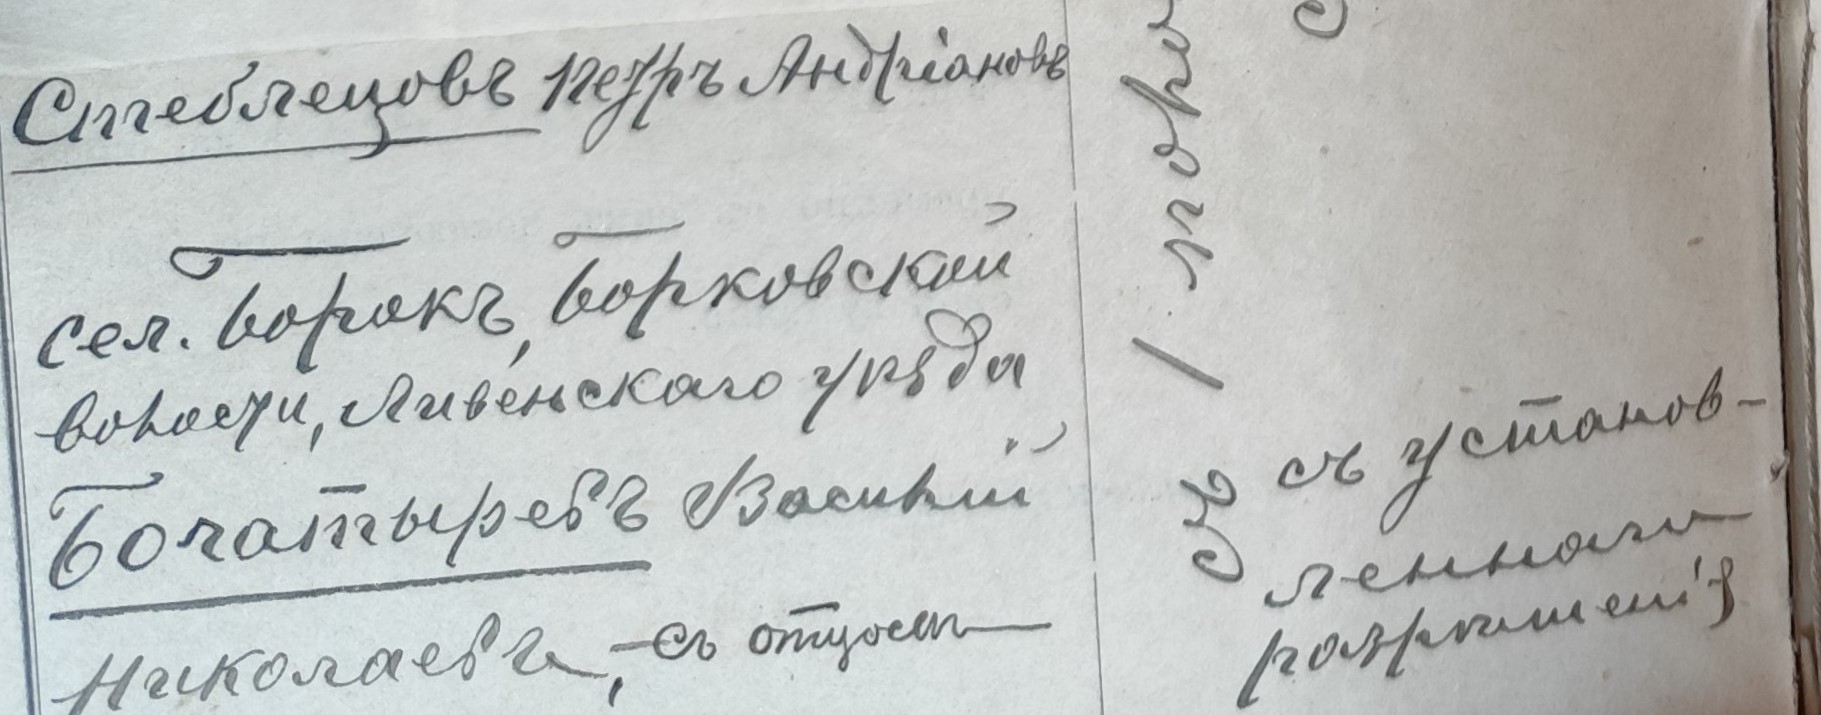 Стеблецовъ Петръ Андріановъ
сел. Борокъ, Борковской
волости, Ливенскаго уѣзда
Богатыревъ Василій
Николаевъ, - съ отцомъ
съ установ-
леннаго
разрѣшенія